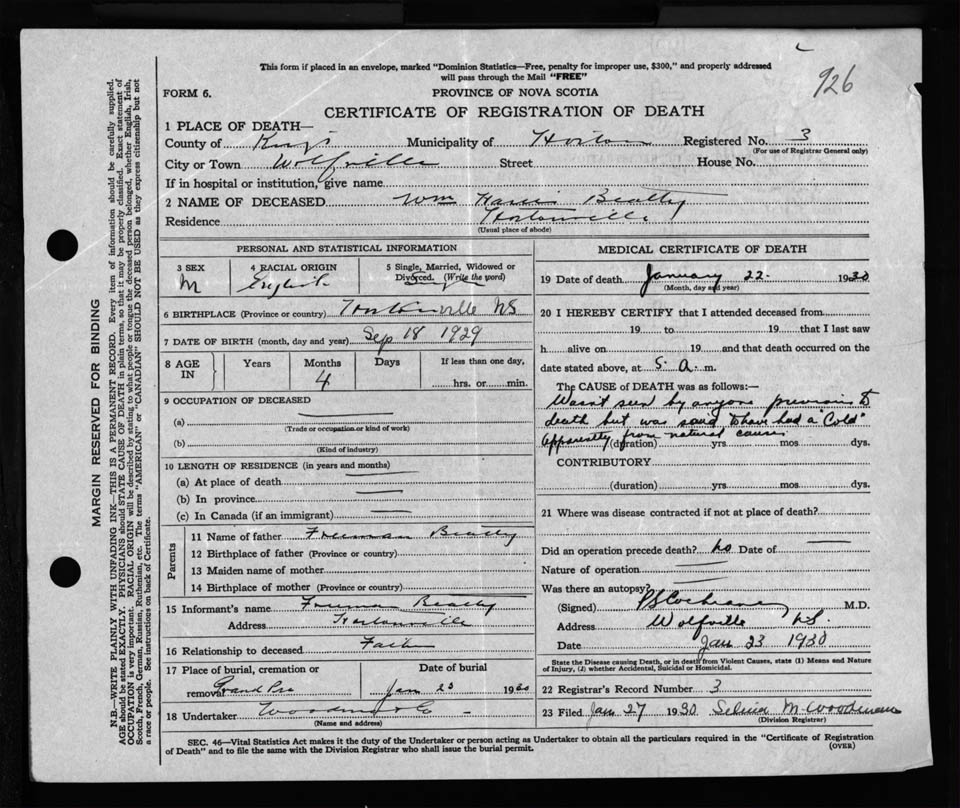 926
This form if placed in an envelope, marked "Dominion Statistics—Free, penalty for improper use, $300," and properly addressed
will pass through the Mail "FREE"
FORM 6.
PROVINCE OF NOVA SCOTIA
CERTIFICATE OF REGISTRATION OF DEATH
1 PLACE OF DEATH—
County of Kings Municipality of Horton Registered No. 3
(For use of Registrar General only)
City or Town Wolfville Street House No.
If in hospital or institution, give name
2 NAME OF DECEASED Wm Harris Beatty
Residence Hortonville
(Usual place of abode)
PERSONAL AND STATISTICAL INFORMATION
3 SEX 4 RACIAL ORIGIN 5 Single, Married, Widowed or
Divorced. (Write the word)
M English Single
6 BIRTHPLACE (Province or country) Hortonville NS
7 DATE OF BIRTH (month, day and year) Sep 18 1929
8 AGE IN Years Months Days If less than one day,
4 hrs. or min.
9 OCCUPATION OF DECEASED
(a)
(Trade or occupation or kind of work)
(b)
(Kind of industry)
10 LENGTH OF RESIDENCE (in years and months)
(a) At place of death
(b) In province
(c) In Canada (if an immigrant)
Parents
11 Name of father Freeman Beatty
12 Birthplace of father (Province or country)
13 Maiden name of mother
14 Birthplace of mother (Province or country)
15 Informant's name Freeman Beatty
Address Hortonville
16 Relationship to deceased Father
17 Place of burial, cremation or Date of burial
removal Grand Pre Jan 23 1930
18 Undertaker Woodman & Co
(Name and address)
MEDICAL CERTIFICATE OF DEATH
19 Date of death January 22 1930
(Month, day and year)
20 I HEREBY CERTIFY that I attended deceased from
19 to 19 that I last saw
h alive on 19 and that death occurred on the
date stated above, at 5 A. m.
The CAUSE of DEATH was as follows:—
Wasn't seen by anyone previous to
death but was said to have had a "Cold"
Apparently from natural causes
(duration) yrs mos dys.
CONTRIBUTORY
(duration) yrs mos dys.
21 Where was disease contracted if not at place of death?
Did an operation precede death? No Date of
Nature of operation
Was there an autopsy?
(Signed) Cochrane M.D.
Address Wolfville N.S.
Date Jan 23 1930
State the Disease causing Death, or in death from Violent Causes, state (1) Means and Nature
of Injury, (2) whether Accidental, Suicidal or Homicidal.
22 Registrar's Record Number 3
23 Filed Jan 27 1930 Selina M. Woodman
(Division Registrar)
SEC. 46—Vital Statistics Act makes it the duty of the Undertaker or person acting as Undertaker to obtain all the particulars required in the "Certificate of Registration
of Death" and to file the same with the Division Registrar who shall issue the burial permit.
(OVER)
MARGIN RESERVED FOR BINDING
N.B.—WRITE PLAINLY WITH UNFADING INK—THIS IS A PERMANENT RECORD. Every item of information should be carefully supplied.
AGE should be stated EXACTLY. PHYSICIANS should STATE CAUSE OF DEATH in plain terms, so that it may be properly classified. Exact statement of
OCCUPATION is very important. RACIAL ORIGIN will be described by stating to what people or tongue the deceased person belonged, whether English, Irish,
Scotch, French, German, Russian, Ruthenian, etc. The terms "AMERICAN" or "CANADIAN" SHOULD NOT BE USED as they express citizenship but not
a race or people. See instructions on back of Certificate.